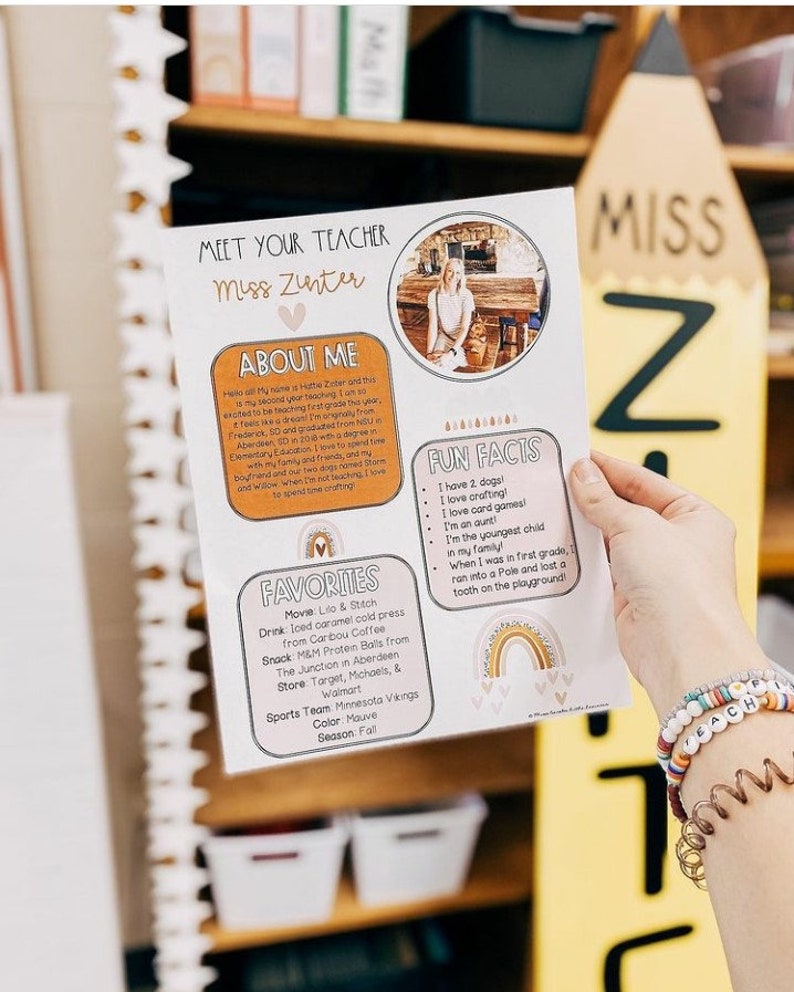 Math
MISS
Z
T
MEET YOUR TEACHER
Miss Zinter
ABOUT ME
Hello all! My name is Hattie Zinter and this
is my second year teaching. I am so
excited to be teaching first grade this year,
it feels like a dream! I'm originally from
Frederick, SD and graduated from NSU in
Aberdeen, SD in 2018 with a degree in
Elementary Education. I love to spend time
with my family and friends, and my
boyfriend and our two dogs named Storm
and Willow. When I'm not teaching, I love
to spend time crafting!
FUN FACTS
• I have 2 dogs!
• I love crafting!
• I love card games!
• I'm an aunt!
• I'm the youngest child
in my family!
• When I was in first grade, I
ran into a Pole and lost a
tooth on the playground!
FAVORITES
Movie: Lilo & Stitch
Drink: Iced caramel cold press
from Caribou Coffee
Snack: M&M Protein Balls from
The Junction in Aberdeen
Store: Target, Michaels, &
Walmart
Sports Team: Minnesota Vikings
Color: Mauve
Season: Fall
TEACH